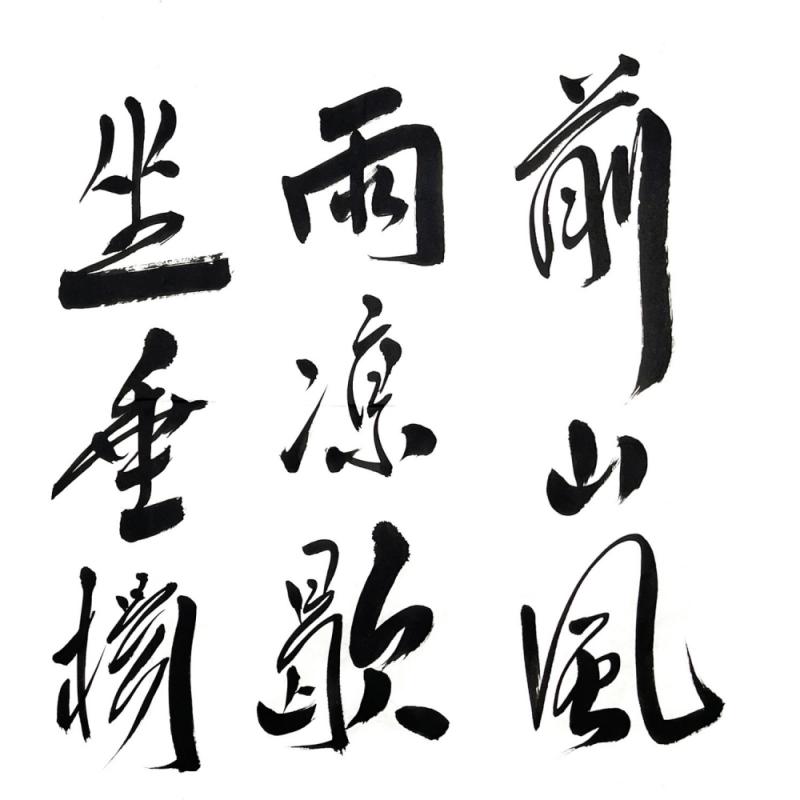 前山風
雨凉歇
坐垂楊